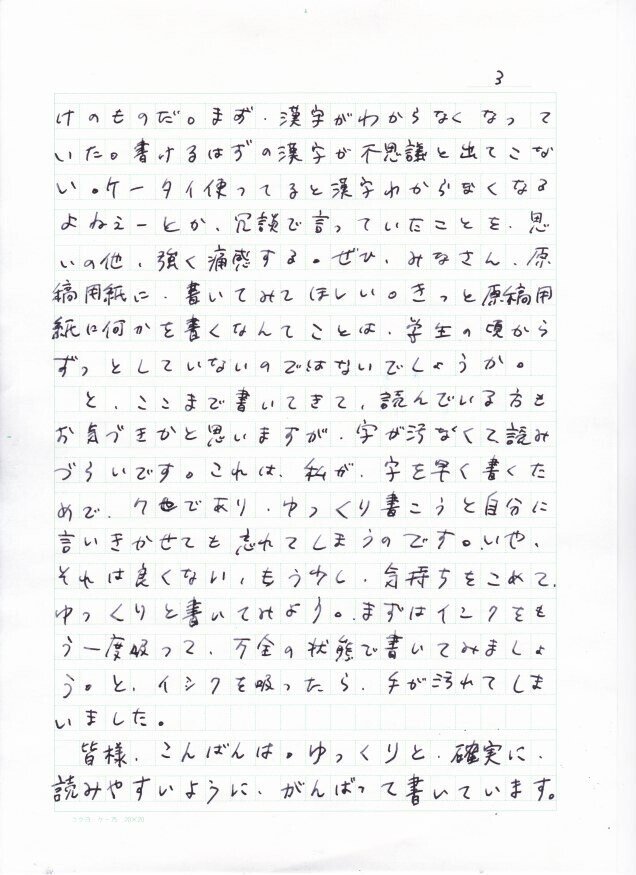 3
けのものだ。まず、漢字がわからなくなって
いた。書けるはずの漢字が不思議と出てこな
い。ケータイ使ってると漢字わからなくなる
よねえーとか、冗談で言っていたことを、思
いの他、強く痛感する。ぜひ、みなさん、原
稿用紙に、書いてみてほしい。きっと原稿用
紙に何かを書くなんてことは、学生の頃から
ずっとしていないのではないでしょうか。
と、ここまで書いてきて、読んでいる方も
お気づきかと思いますが、字が汚なくて読み
づらいです。これは、私が、字を早く書くた
めで、クセであり、ゆっくり書こうと自分に
言いきかせても忘れてしまうのです。いや、
それは良くない、もう少し、気持ちをこめて、
ゆっくりと書いてみよう。まずはインクをも
う一度吸って、万全の状態で書いてみましょ
う。と、インクを吸ったら、手が汚れてしま
いました。
皆様、こんばんは。ゆっくりと、確実に、
読みやすいように、がんばって書いています。
コクヨ ケ-75 20×20